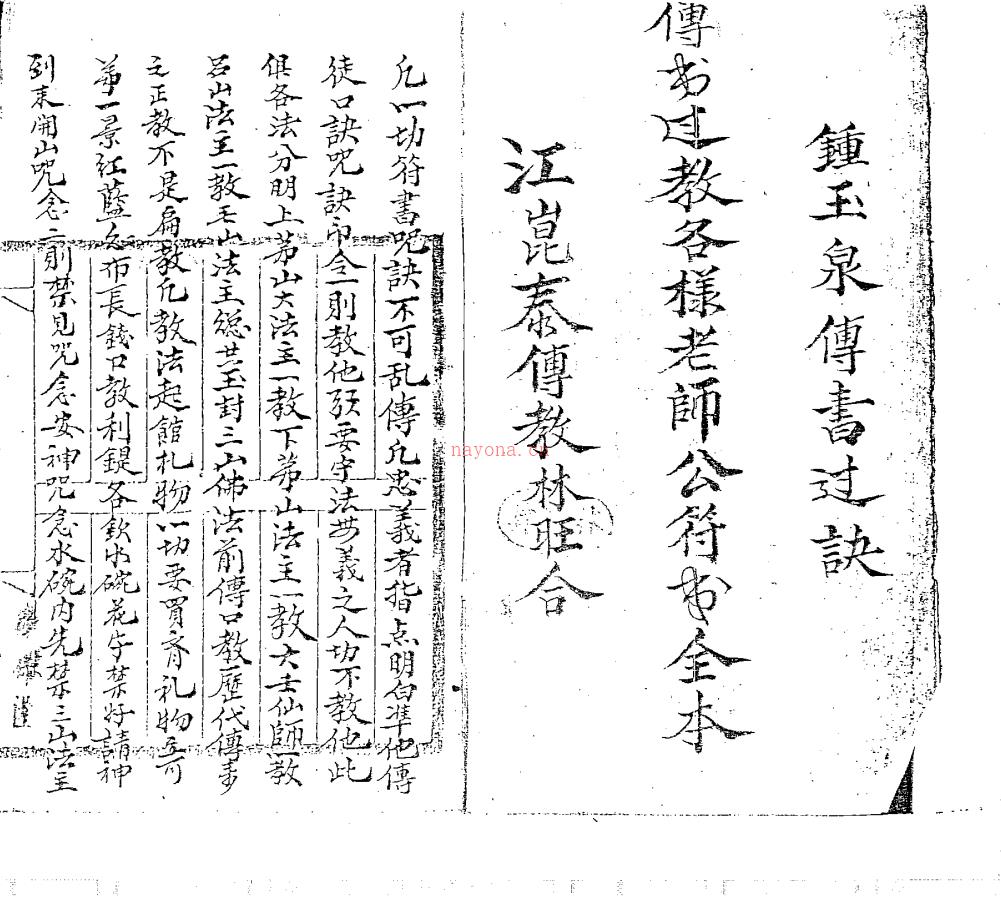 鍾玉泉傳書过訣
傳书过教各樣老師公符书全本
江崑泰傳教林旺合
凢一切符書呪訣不可乱傳凢忠義者指点明白準他傳
徒口訣呪訣印令一則教他須要守法無義之人切不教他此
俱各法分明上茅山大法主一教下茅山法主一教大士仙師教
呂山法主一教王山法主總共玉封三山佛法前傳口教歷代傳
之正教不是扁教凢教法起館札物一切要買齊礼物
第一景紅藍布長錢口教利鍉各欽水碗花字禁好請神
到来開山呪念二則禁見呪念安神呪念水碗内先禁三山法主
nayona.cn